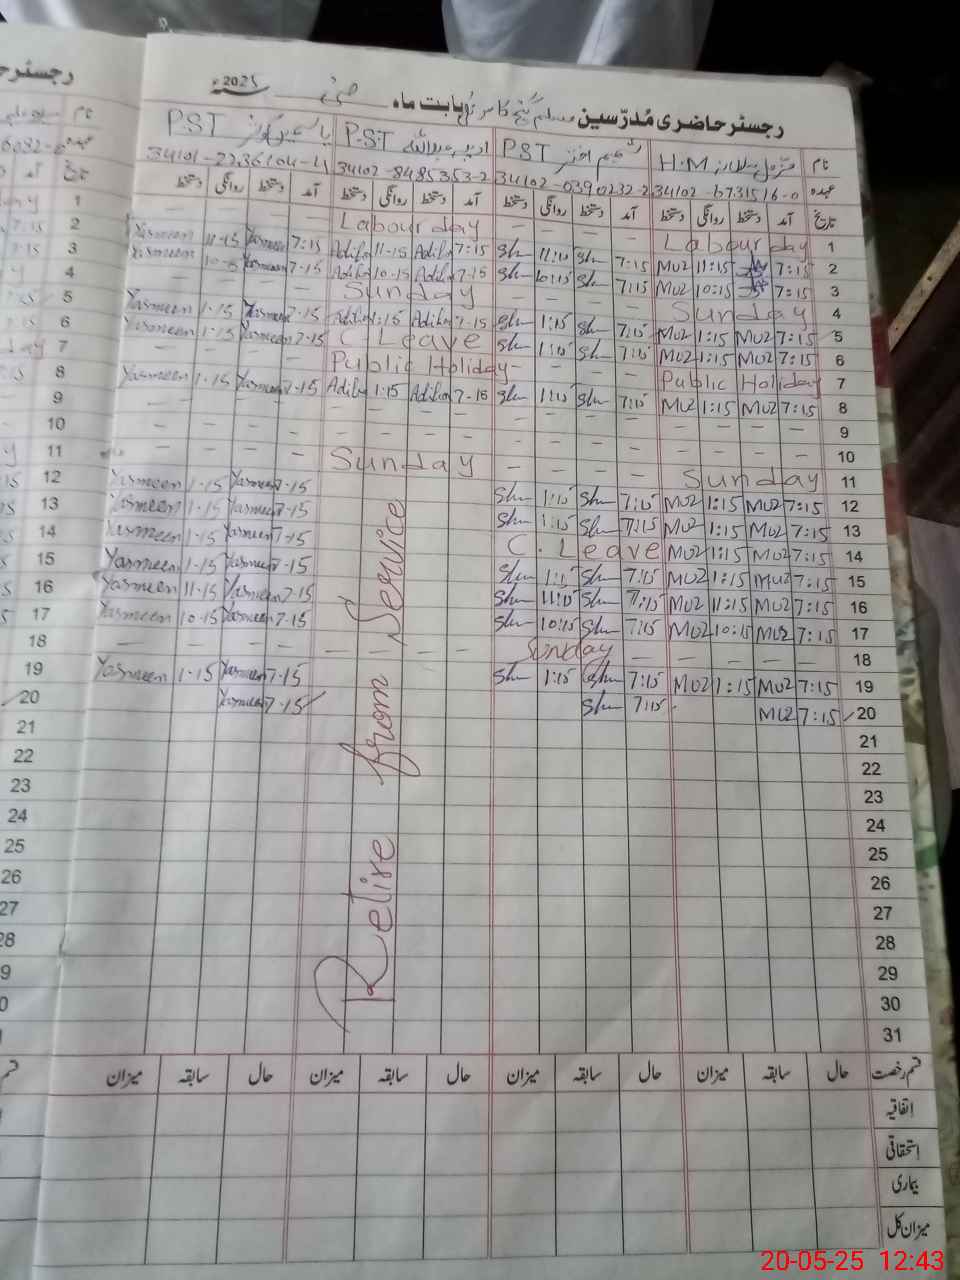 رجسٹر حاضری مُدرّسین بابت ماہ 2025ء
نام H.M PST P.S.T P.S.T
عہدہ 34102-6731516-0 34102-0390232-2 34102-8485353-2 34101-2236104-4
تاریخ آمد دستخط روانگی دستخط آمد دستخط روانگی دستخط آمد دستخط روانگی دستخط آمد دستخط روانگی دستخط
1 Labour day — — — — Labour day — — — —
2 7:15 11:15 MUZ 7:15 Shm 11:15 Shm 7:15 Adiba 11-15 Adiba 7:15 Yasmeen 11-15 Yasmeen
3 7:15 10:15 MUZ 7:15 Shm 10:15 Shm 7-15 Adiba 10-15 Adiba 7-15 Yasmeen 10-15 Yasmeen
4 Sunday — — — — Sunday — — — —
5 7:15 MUZ 1:15 MUZ 7:15 Shm 1:15 Shm 7-15 Adiba 1:15 Adiba 7-15 Yasmeen 1-15 Yasmeen
6 7:15 MUZ 1:15 MUZ 7:15 Shm 1:15 Shm C. Leave 7-15 Yasmeen 1-15 Yasmeen
7 Public Holiday — — — — Public Holiday — — — —
8 7:15 MUZ 1:15 MUZ 7:15 Shm 1:15 Shm 7-15 Adiba 1:15 Adiba 7-15 Yasmeen 1-15 Yasmeen
9 — — — — — — — — — — — — — — — —
10 — — — — — — — — — — — — — — — —
11 Sunday — — — — Sunday — — — —
12 7:15 MUZ 1:15 MUZ 7:15 Shm 1:15 Shm 7-15 Yasmeen 1-15 Yasmeen
13 7:15 MUZ 1:15 MUZ 7:15 Shm 1:15 Shm 7-15 Yasmeen 1-15 Yasmeen
14 7:15 MUZ 1:15 MUZ C. Leave 7-15 Yasmeen 1-15 Yasmeen
15 7:15 MUZ 1:15 MUZ 7:15 Shm 1:15 Shm 7-15 Yasmeen 1-15 Yasmeen
16 7:15 MUZ 11:15 MUZ 7:15 Shm 11:15 Shm 7-15 Yasmeen 11-15 Yasmeen
17 7:15 MUZ 10:15 MUZ 7:15 Shm 10:15 Shm 7-15 Yasmeen 10-15 Yasmeen
18 — — — — Sunday — — — — — — — —
19 7:15 MUZ 1:15 MUZ 7:15 Shm 1:15 Shm 7-15 Yasmeen 1-15 Yasmeen
20 7:15 MUZ 7:15 Shm 7-15 Yasmeen
Retire from Service
21
22
23
24
25
26
27
28
29
30
31
قسم رخصت حال سابقہ میزان حال سابقہ میزان حال سابقہ میزان حال سابقہ میزان
اتفاقیہ
استحقاقی
بیماری
میزان کل
20-05-25 12:43